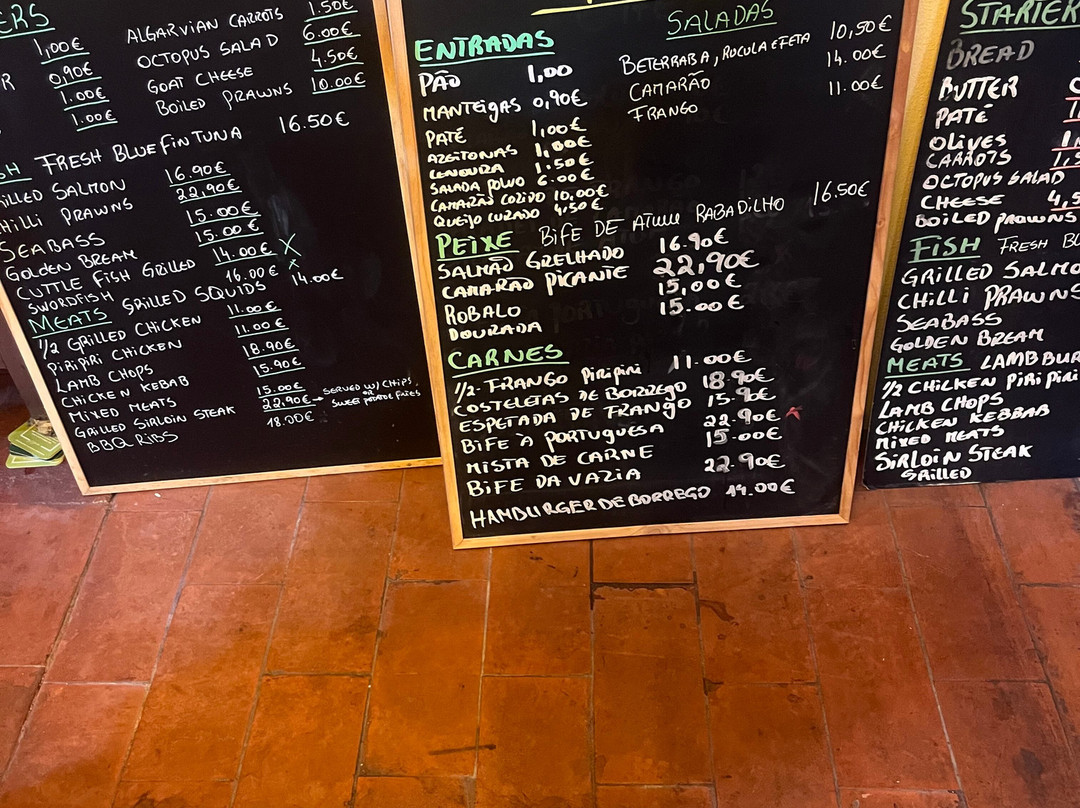 ERS
1,00€
R 0,90€
1.00€
1.00€
ALGARVIAN CARROTS 1.50€
OCTOPUS SALAD 6.00€
GOAT CHEESE 4.50€
BOILED PRAWNS 10.00€
SH FRESH BLUEFIN TUNA 16.50€
ILLED SALMON 16.90€
HILLI PRAWNS 22.90€
SEABASS 15.00€
GOLDEN BREAM 15.00€
CUTTLE FISH GRILLED 14.00€ X
SWORDFISH 16.00€ X
MEATS GRILLED SQUIDS 14.00€
1/2 GRILLED CHICKEN 11.00€
PIRIPIRI CHICKEN 11.00€
LAMB CHOPS 18.90€
CHICKEN KEBAB 15.90€
MIXED MEATS 15.00€
GRILLED SIRLOIN STEAK 22.90€ → SERVED W/ CHIPS
OR
SWEET POTATOE FRIES
BBQ RIBS 18.00€
ENTRADAS
PÃO 1,00
MANTEIGAS 0,90€
PATÉ 1,00€
AZEITONAS 1,00€
CENOURA 1.50€
SALADA POLVO 6.00€
CAMARÃO COZIDO 10,00€
QUEIJO CURADO 4,50€
SALADAS
BETERRABA, RUCULA E FETA 10,50€
CAMARÃO 14.00€
FRANGO 11.00€
PEIXE BIFE DE ATUM RABADILHO 16.50€
SALMÃO GRELHADO 16.90€
CAMARÃO PICANTE 22,90€
ROBALO 15,00€
DOURADA 15.00€
CARNES
1/2 FRANGO PIRIPIRI 11.00€
COSTELETAS DE BORREGO 18.90€
ESPETADA DE FRANGO 15.90€
BIFE À PORTUGUESA 22.90€ X
MISTA DE CARNE 15.00€
BIFE DA VAZIA 22.90€
HAMBURGER DE BORREGO 14.00€
STARTER
BREAD
BUTTER
PATÉ
OLIVES
CARROTS 1,5
OCTOPUS SALAD
CHEESE 4,5
BOILED PRAWNS
FISH FRESH BL
GRILLED SALMO
CHILLI PRAWNS
SEABASS
GOLDEN BREAM
MEATS LAMB BUR
1/2 CHICKEN PIRI PIRI
LAMB CHOPS
CHICKEN KEBBAB
MIXED MEATS
SIRLOIN STEAK
GRILLED